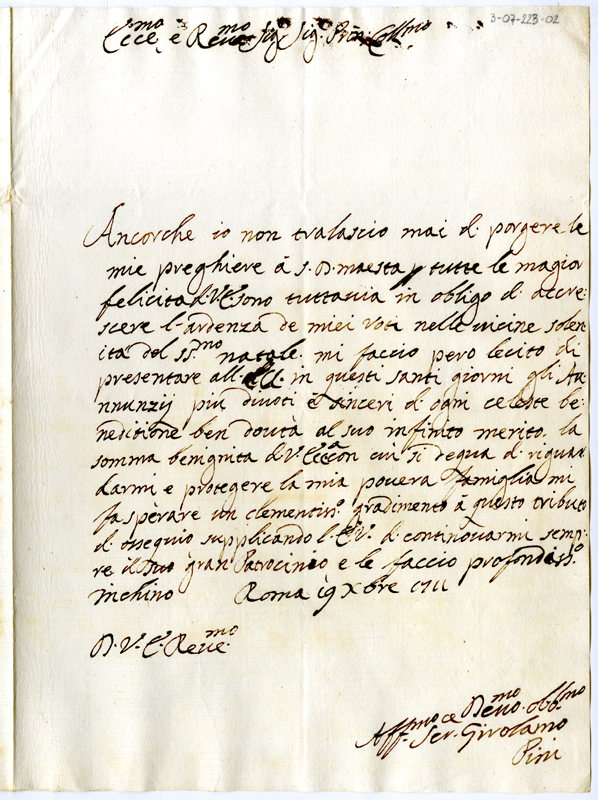 3-07-223-02
Ecce.mo e Reue.mo Sig.r Sig.r Pron Coll.mo
Ancorche io non tralascio mai d. porgere le
mie preghiere à S. D. maesta p tutte le magior
felicita d. V.E. sono tuttauia in obligo d. accre-
scere l'ardenza de miei voti nelle uicine solen
ità del ss.mo natale. mi faccio pero lecito di
presentare all. E.V. in questi santi giorni gli An
nnunzij più diuoti e sinceri d. ogni celeste be-
neditione ben douta al suo infinito merito. la
somma benignita d. V. Ecc.a con cui si degna d. riguar
darmi e protegere la mia pouera famiglia mi
fa sperare un clementiss.o gradimento à questo tributo
d. ossequio supplicando l.E.V. d. continouarmi semp-
re il suo gran Patrocinio e le faccio profondiss.o
inchino Roma 19 Xbre 1711
D. V. E. Reue.mo
Aff.mo e Deuo.mo obb.mo
Ser. Girolamo
Pini